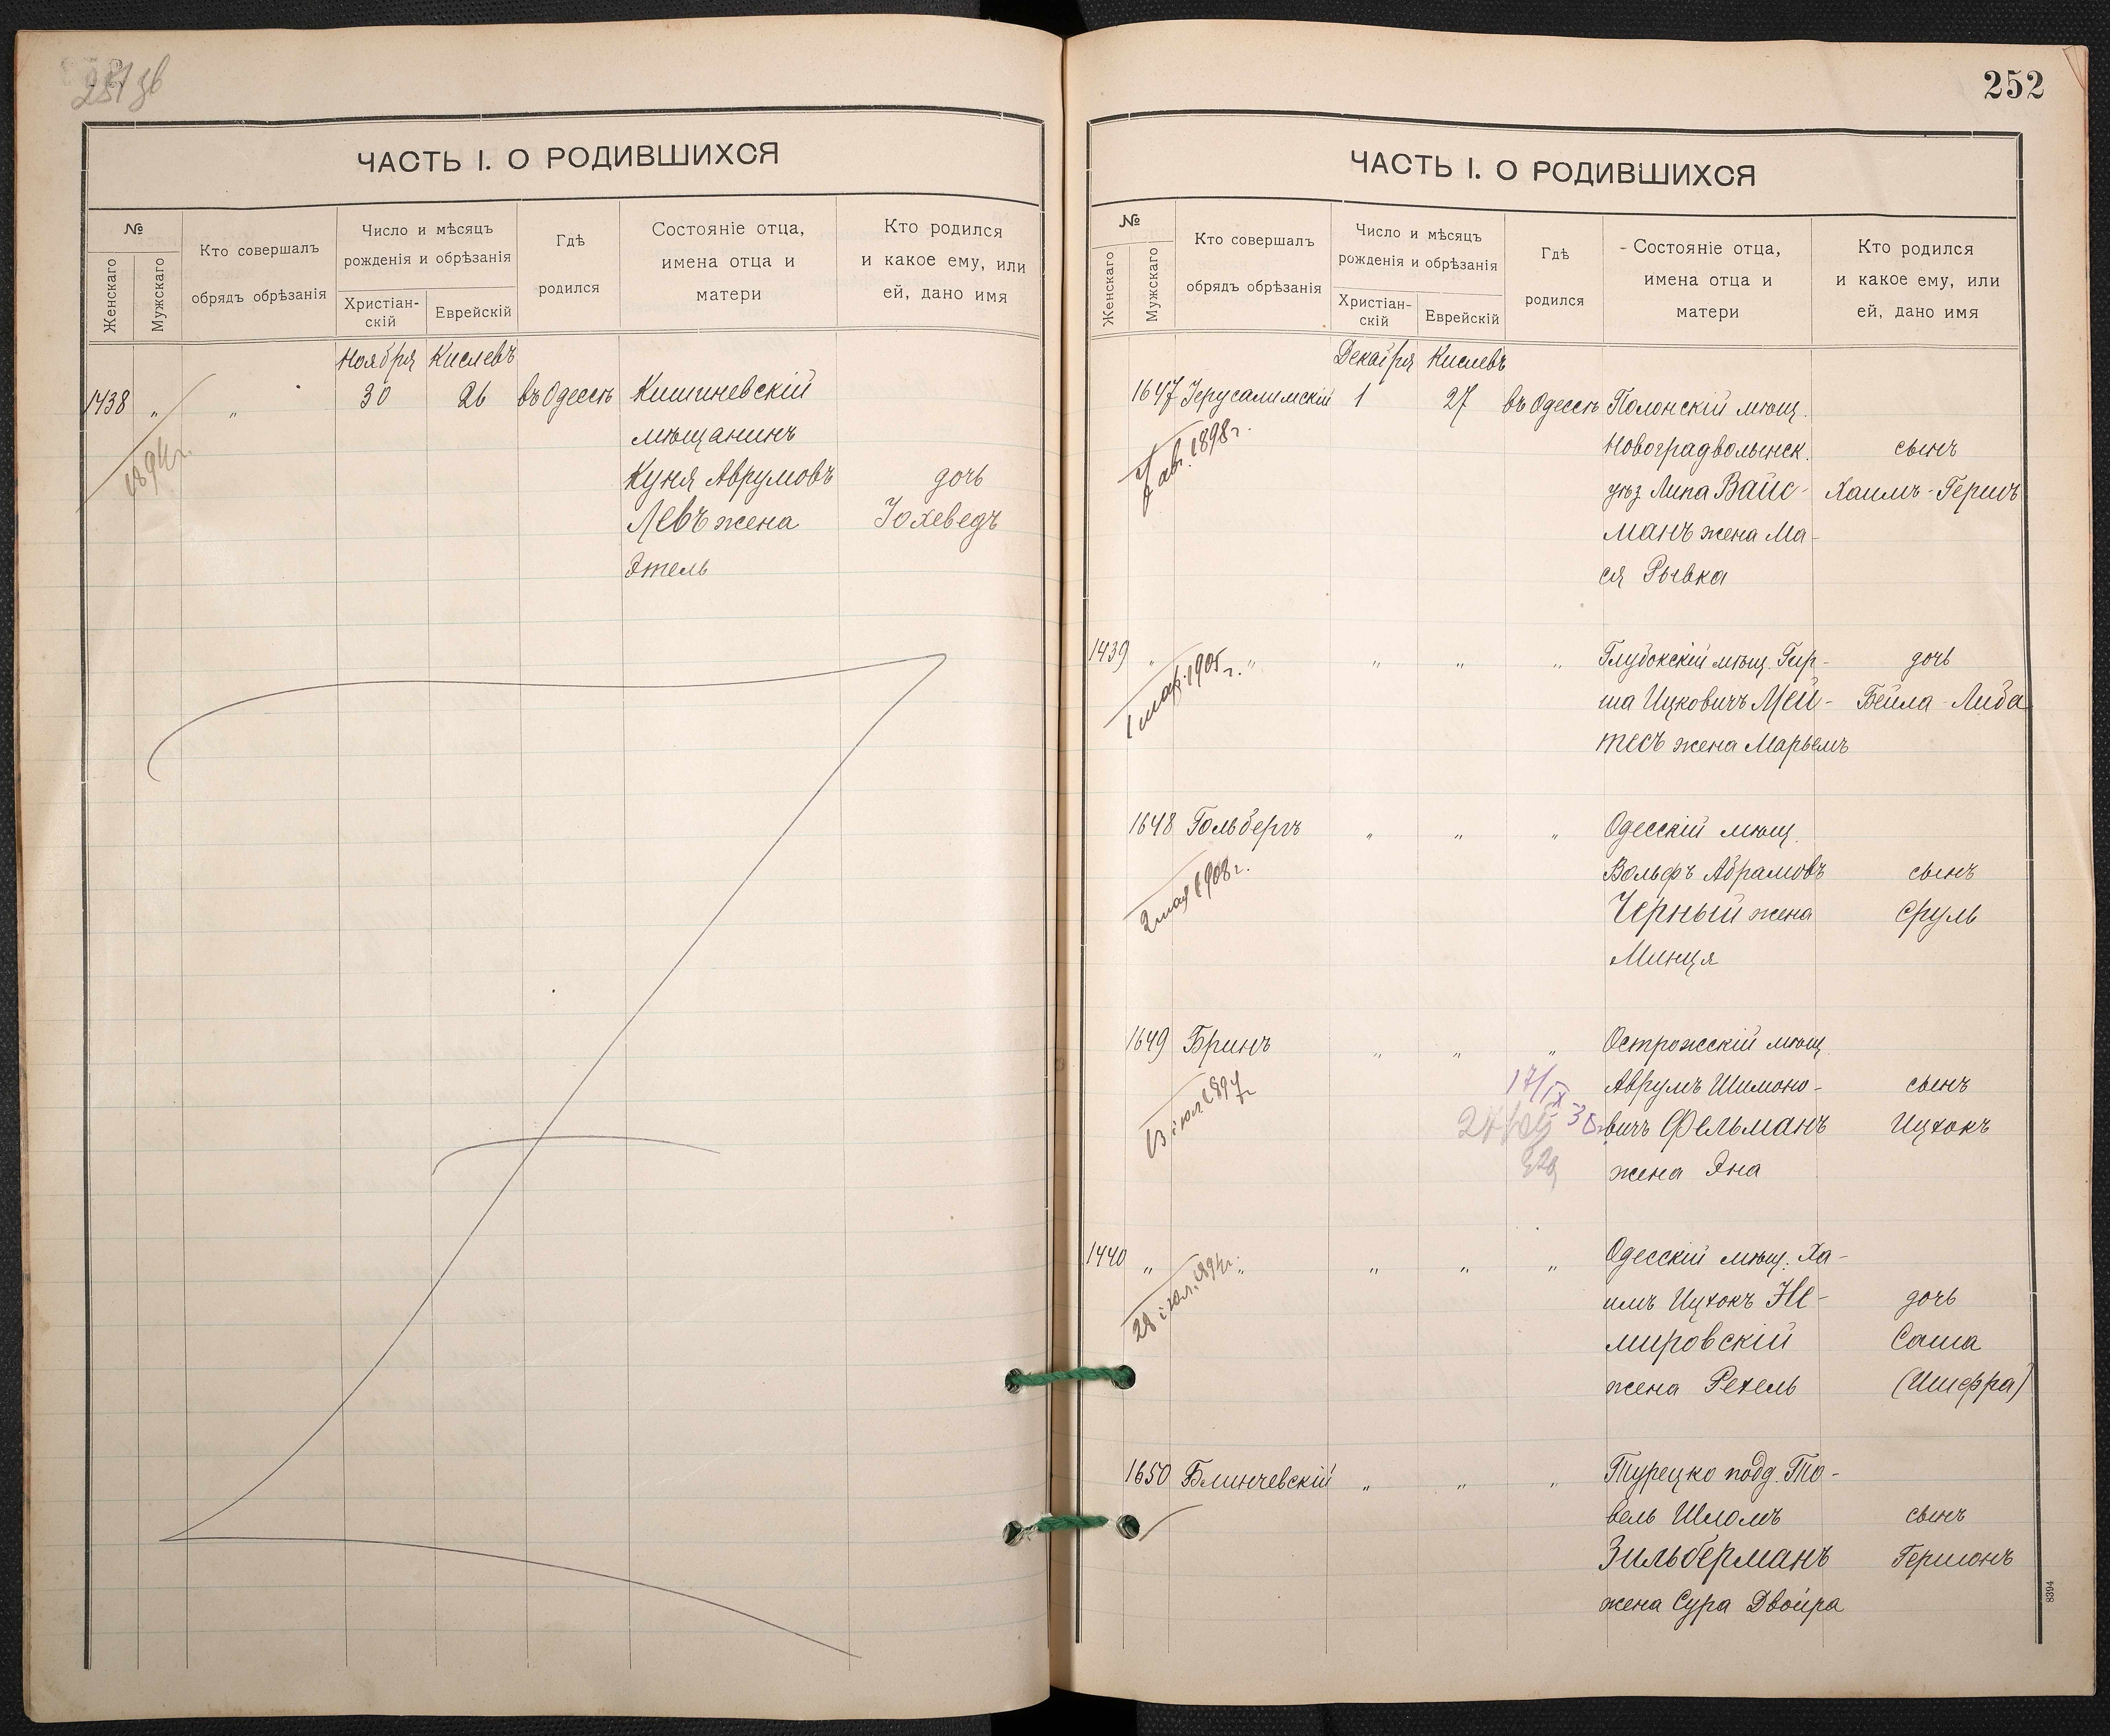 ЧАСТЬ I. О РОДИВШИХСЯ
№
Женскаго
Мужскаго
Кто совершалъ
обрядъ обрѣзанія
Число и мѣсяцъ
рожденія и обрѣзанія
Христіан-
скій
Еврейскій
Гдѣ
родился
Состояніе отца,
имена отца и
матери
Кто родился
и какое ему, или
ей, дано имя
Ноября Кислевъ
1438 " " 30 26 въ Одессѣ Кишиневскій
мѣщанинъ
Куня Аврумовъ дочь
Левъ жена Іохеведъ
Этель
1894г.
252
ЧАСТЬ I. О РОДИВШИХСЯ
№
Женскаго
Мужскаго
Кто совершалъ
обрядъ обрѣзанія
Число и мѣсяцъ
рожденія и обрѣзанія
Христіан-
скій
Еврейскій
Гдѣ
родился
Состояніе отца,
имена отца и
матери
Кто родился
и какое ему, или
ей, дано имя
Декабря Кислевъ
1647 Іерусалимскій 1 27 въ Одессѣ Полонскій мѣщ.
Новоградволынск. сынъ
уѣз. Липа Вайс- Хаимъ-Гершъ
манъ жена Ма-
ся Рывка
авг. 1898г.
1439 " " " " " Глубокскій мѣщ. Гер- дочь
ша Ицковичъ Мей- Бейла-Либа
тесъ жена Марьемъ
1 мар. 1905г.
1648 Гольбергъ " " " Одесскій мѣщ.
Вольфъ Абрамовъ сынъ
Черный жена Сруль
Минця
2 мая 1908г.
1649 Бринъ " " " Острожскій мѣщ.
Аврумъ Шимоно- сынъ
вичъ Фельманъ Ицхокъ
жена Эна
13 іюл. 1897г
17/IX 35
1440 " " " " " Одесскій мѣщ. Ха-
имъ Ицхокъ Не- дочь
мировскій Соша
жена Рехель (Шифра)
28 іюл. 1894г.
1650 Блинчевскій " " " Турецко подд. То-
вель Шломъ сынъ
Зильберманъ Гершонъ
жена Сура Двойра
8394